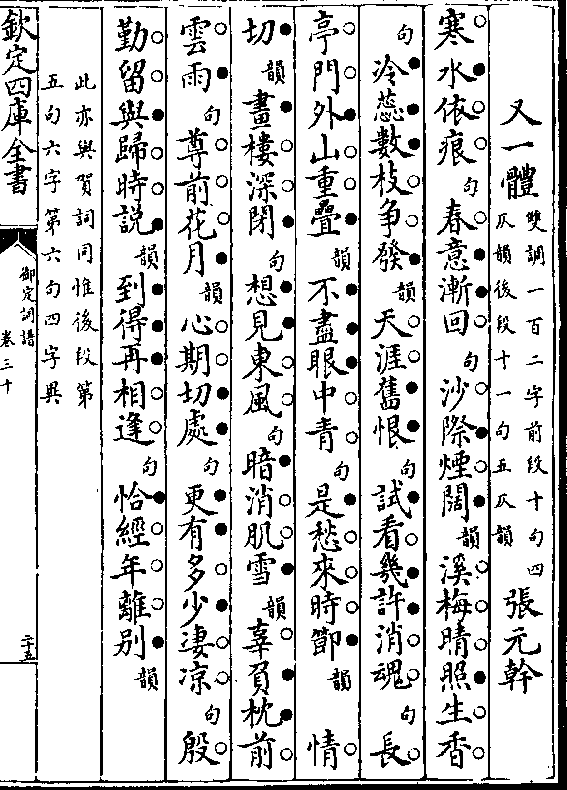 又一體 雙調一百二字前段十句四
仄韻後段十一句五仄韻 張元幹
寒水依痕句春意漸回句沙際煙闊韻溪梅晴照生香
句冷蕊數枝爭發韻天涯舊恨句試看幾許消魂句長
亭門外山重疊韻不盡眼中青句是愁來時節韻 情
切韻畫樓深閉句想見東風句暗消肌雪韻辜負枕前
雲雨句尊前花月韻心期切處句更有多少凄涼句殷
勤留與歸時説韻到得再相逢句恰經年離別韻
此亦與賀詞同惟後段第
五句六字第六句四字異
欽定四庫全書
御定詞譜
卷三十
二十五